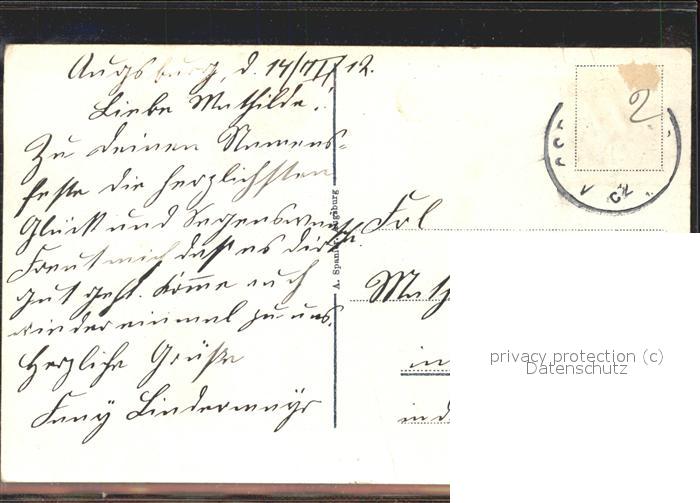 Augsburg, d. 14/VII 12.
Liebe Mathilde!
Zu deinen Namens-
feste die herzlichsten
Glück und Segenswünsch.
Freut mich daß es dir
gut geht. Komme auch
wieder einmal zu uns.
Herzliche Grüße
Fany Lindermayr
A. Spanl Augsburg
2
Frl
Math
in
in d
privacy protection (c)
Datenschutz